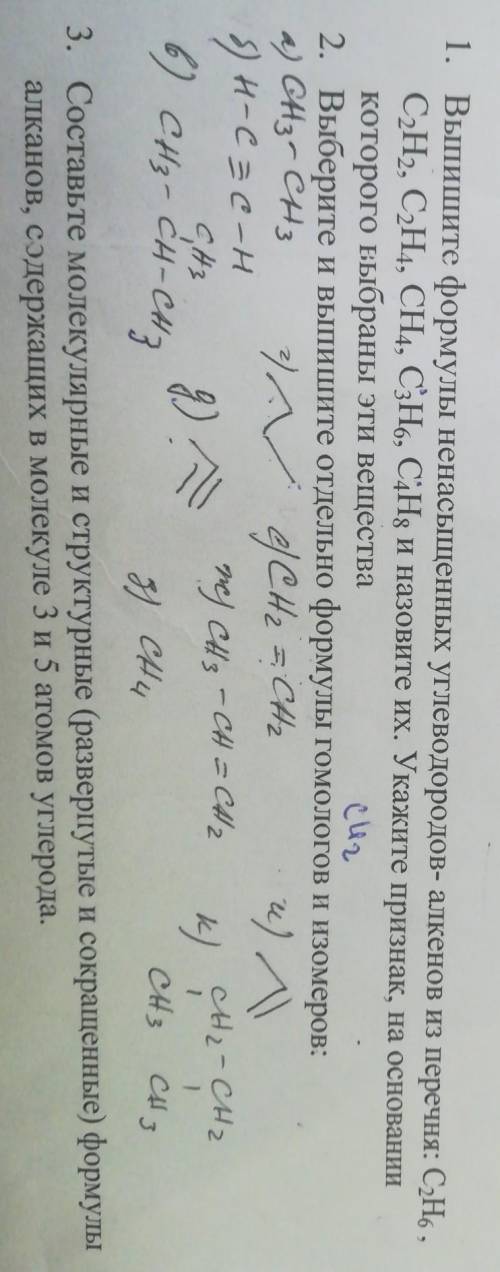 1. Выпишите формулы ненасыщенных углеводородов- алкенов из перечня: C₂H₆ ,
C₂H₂, C₂H₄, CH₄, C₃H₆, C₄H₈ и назовите их. Укажите признак, на основании
которого выбраны эти вещества
CH₂
2. Выберите и выпишите отдельно формулы гомологов и изомеров:
а) CH₃ – CH₃ г) е) CH₂ = CH₂ и)
б) H – C ≡ C – H д) ж) CH₃ – CH = CH₂ к) CH₂ – CH₂
CH₃ CH₃
CH₃
в) CH₃ – CH – CH₃ з) CH₄
3. Составьте молекулярные и структурные (развернутые и сокращенные) формулы
алканов, содержащих в молекуле 3 и 5 атомов углерода.